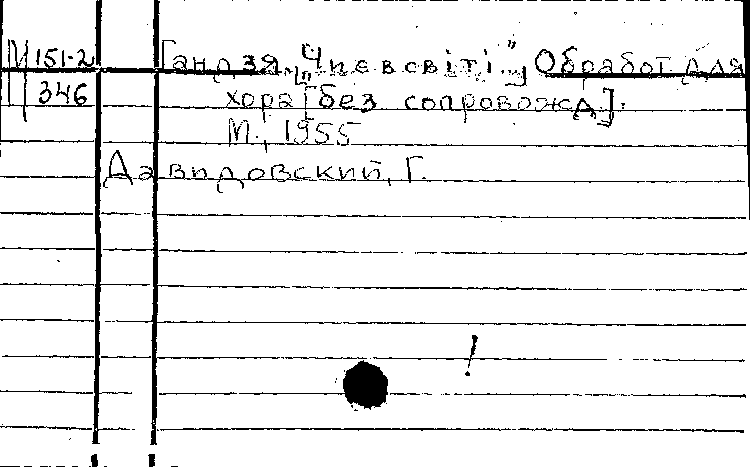 М 151-2
346
Гандзя. ["Чи є в світі..."] Обработ. для
хора [без сопровожд].
М., 1955
Давидовский, Г.
!